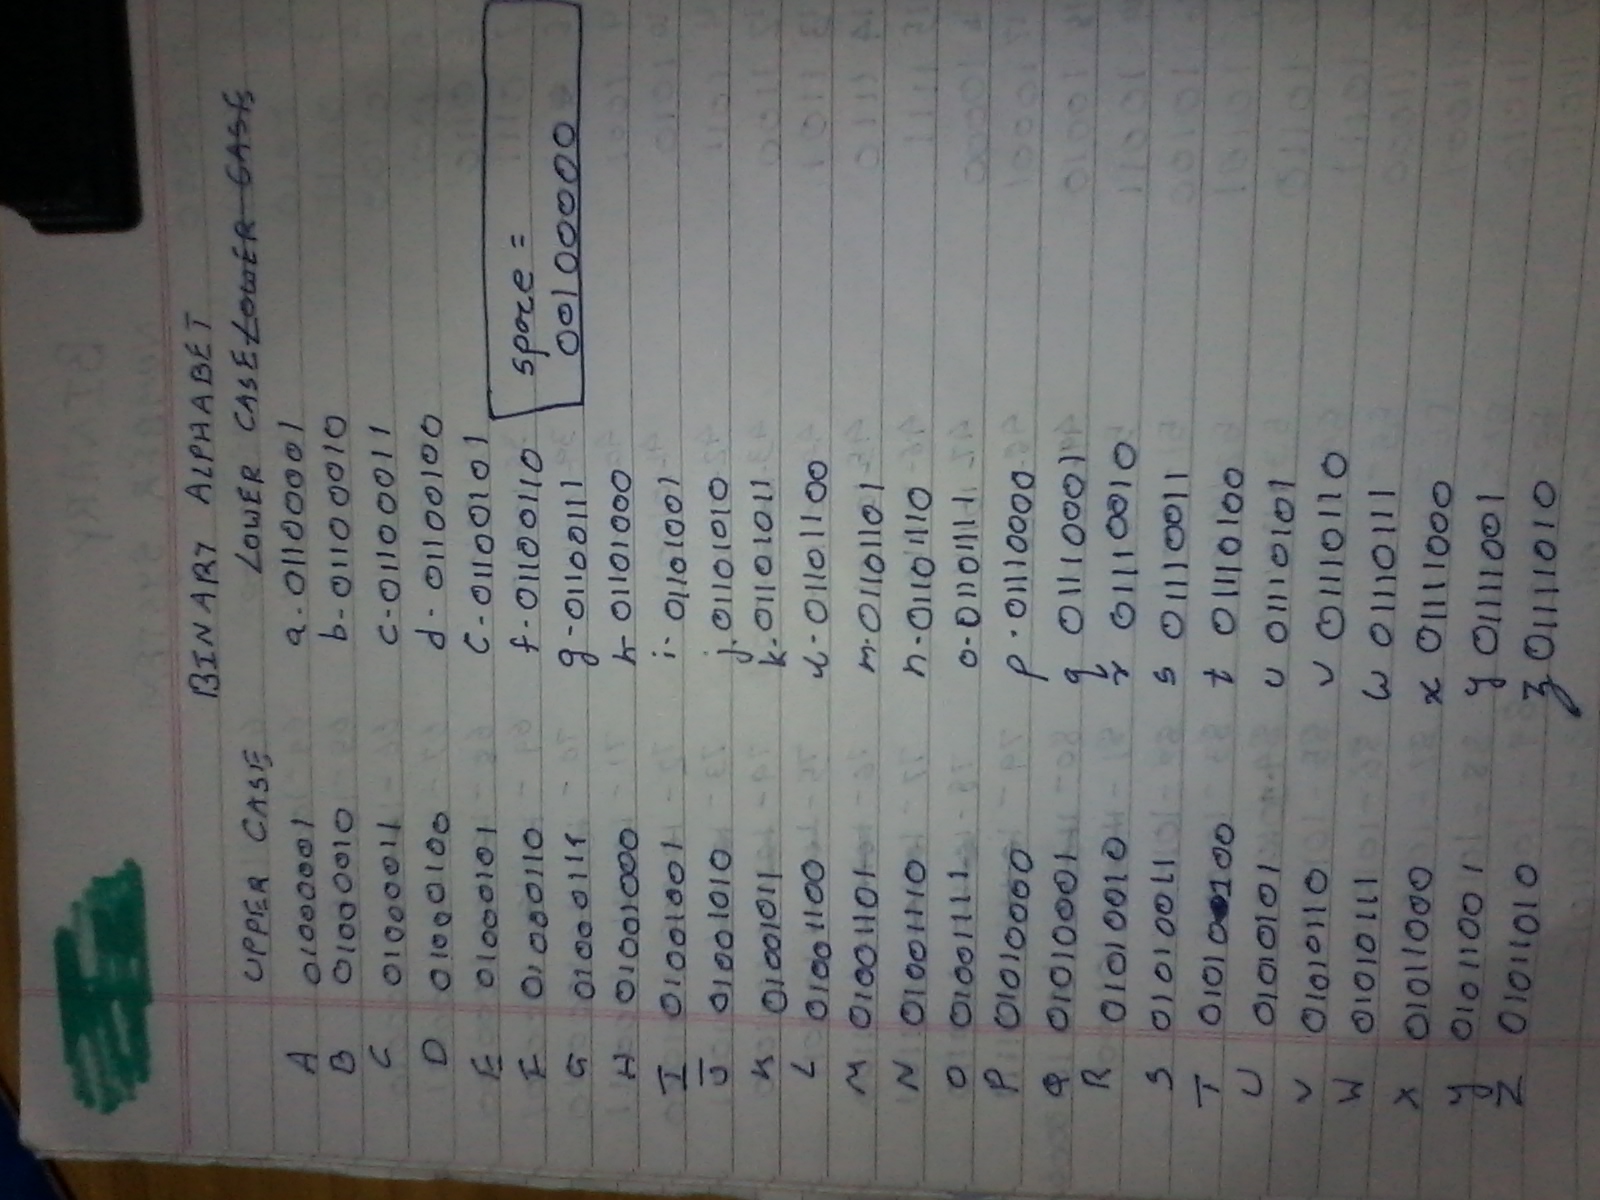 BINARY ALPHABET
UPPER CASE LOWER CASE LOWER CASE
A 01000001 a - 01100001
B 01000010 b - 01100010
C 01000011 c - 01100011
D 01000100 d - 01100100
E 01000101 c - 01100101
F 01000110 f - 01100110
space =
00100000
G 01000111 g - 01100111
H 01001000 h - 01101000
I 01001001 i - 01101001
J 01001010 j - 01101010
K 01001011 k - 01101011
L 01001100 l - 01101100
M 01001101 m - 01101101
N 01001110 n - 01101110
O 01001111 o - 01101111
P 01010000 p - 01110000
Q 01010001 q 01110001
R 01010010 r 01110010
S 01010011 s 01110011
T 01010100 t 01110100
U 01010101 u 01110101
V 01010110 v 01110110
W 01010111 w 01110111
X 01011000 x 01111000
y 01011001 y 01111001
Z 01011010 z 01111010